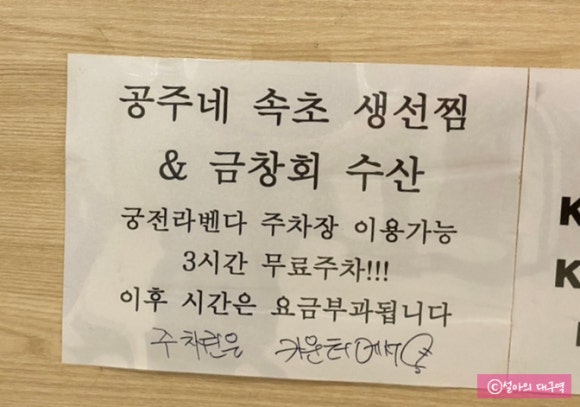 공주네 속초 생선찜
& 금창회 수산
궁전라벤다 주차장 이용가능
3시간 무료주차!!!
이후 시간은 요금부과됩니다
주차권은 카운터에서
K
K
ⓒ설아의 대구역